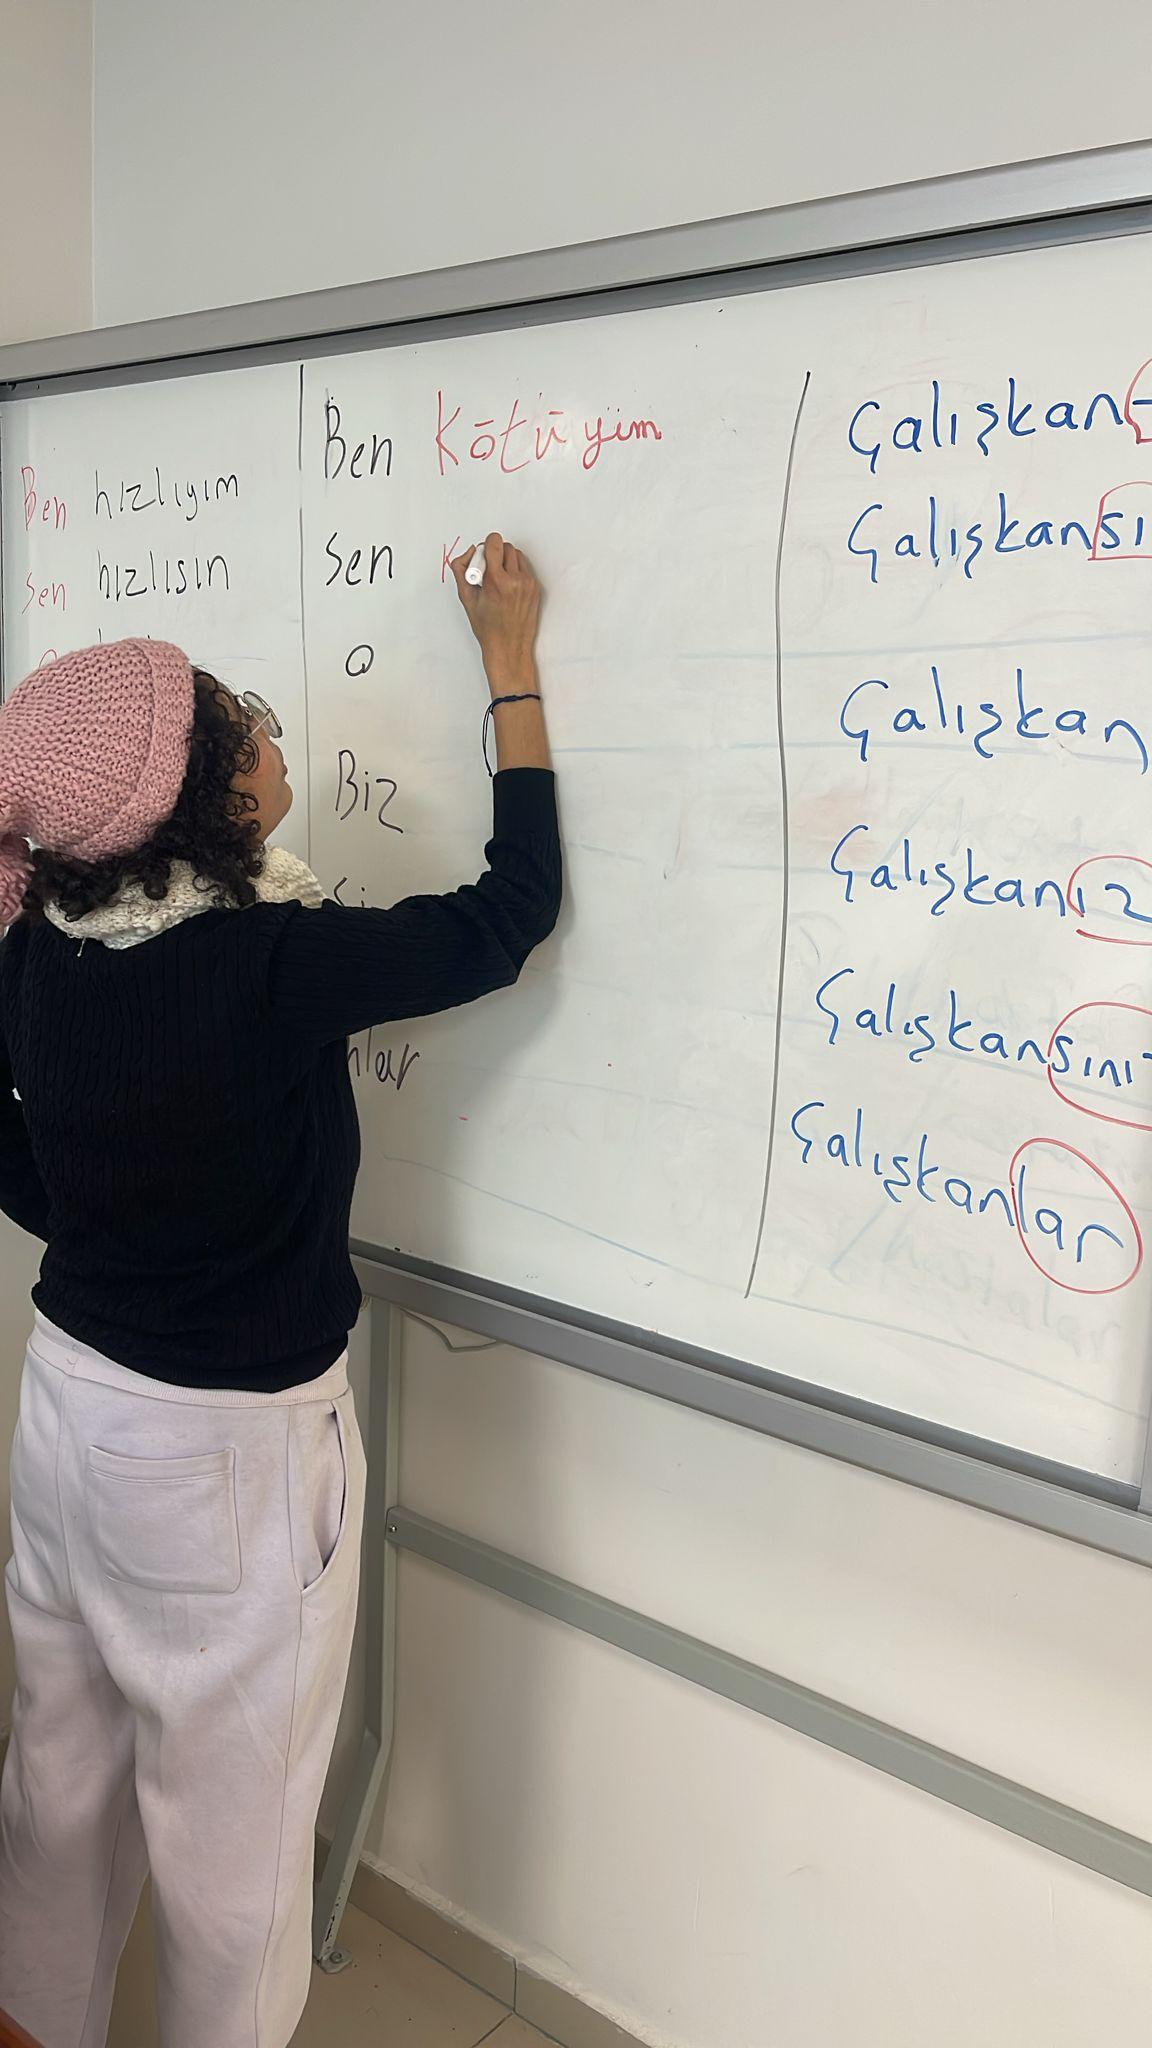 Ben hızlıyım
Sen hızlısın
Ben Kötüyim
Sen K
O
Biz
nlar
Çalışkan
Çalışkansı
Çalışkan
Çalışkanız
Çalışkansını
Çalışkanlar